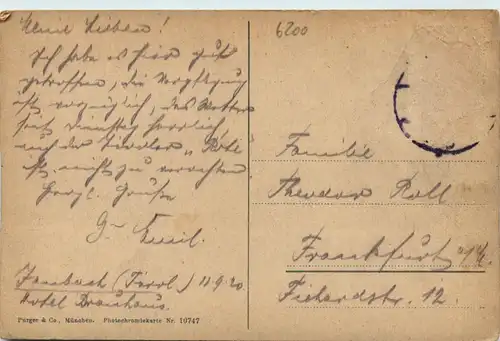 Meine Lieben!
Ich habe es hier gut
getroffen, die Verpflegung
ist vorzüglich, das Wetter
seit Dienstag herrlich,
auch der Tiroler „Rote“
ist nicht zu verachten
Herzl. Grüße
Emil.
Jenbach (Tirol) 11.9.20.
Hotel Bräuhaus.
Purger & Co., München. Photochromiekarte Nr. 10747
6200
Familie
Theodor Roll
Frankfurt a/M.
Fichardstr. 12.